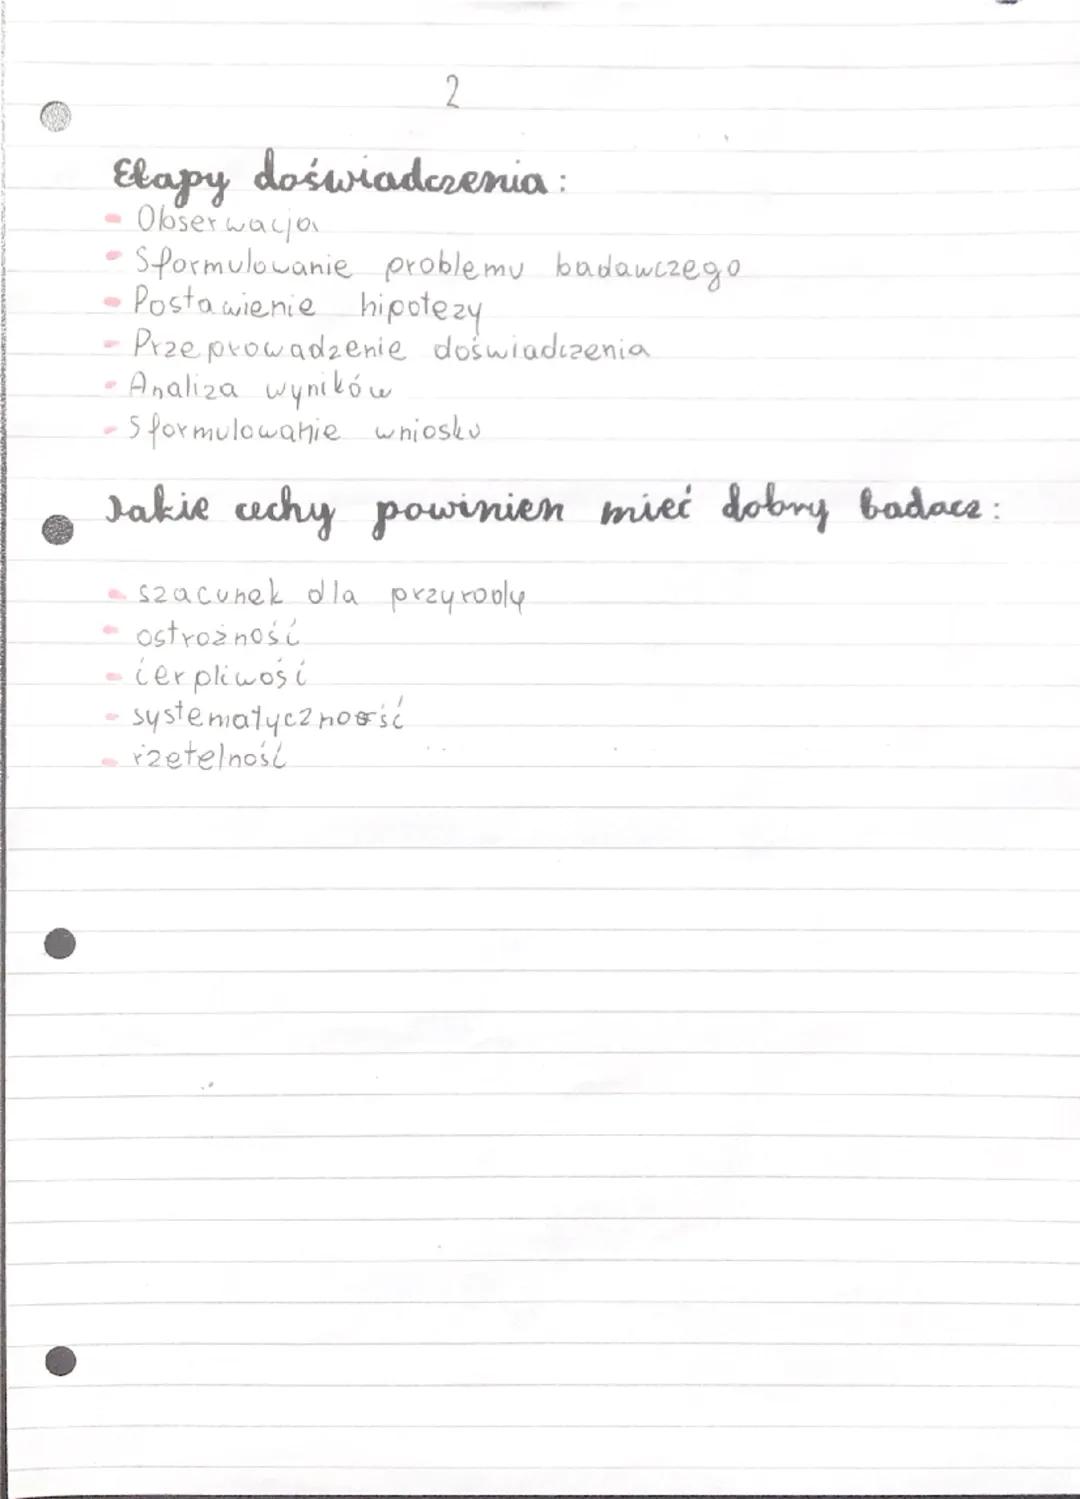 2
Etapy doświadczenia:
- Obserwacja
- Sformułowanie problemu badawczego
- Postawienie hipotezy
- Przeprowadzenie doświadczenia
- Analiza wyników
- Sformułowanie wniosku
Jakie cechy powinien mieć dobry badacz:
- szacunek dla przyrody
- ostrożność
- ćerpliwość
- systematyczność
- rzetelność